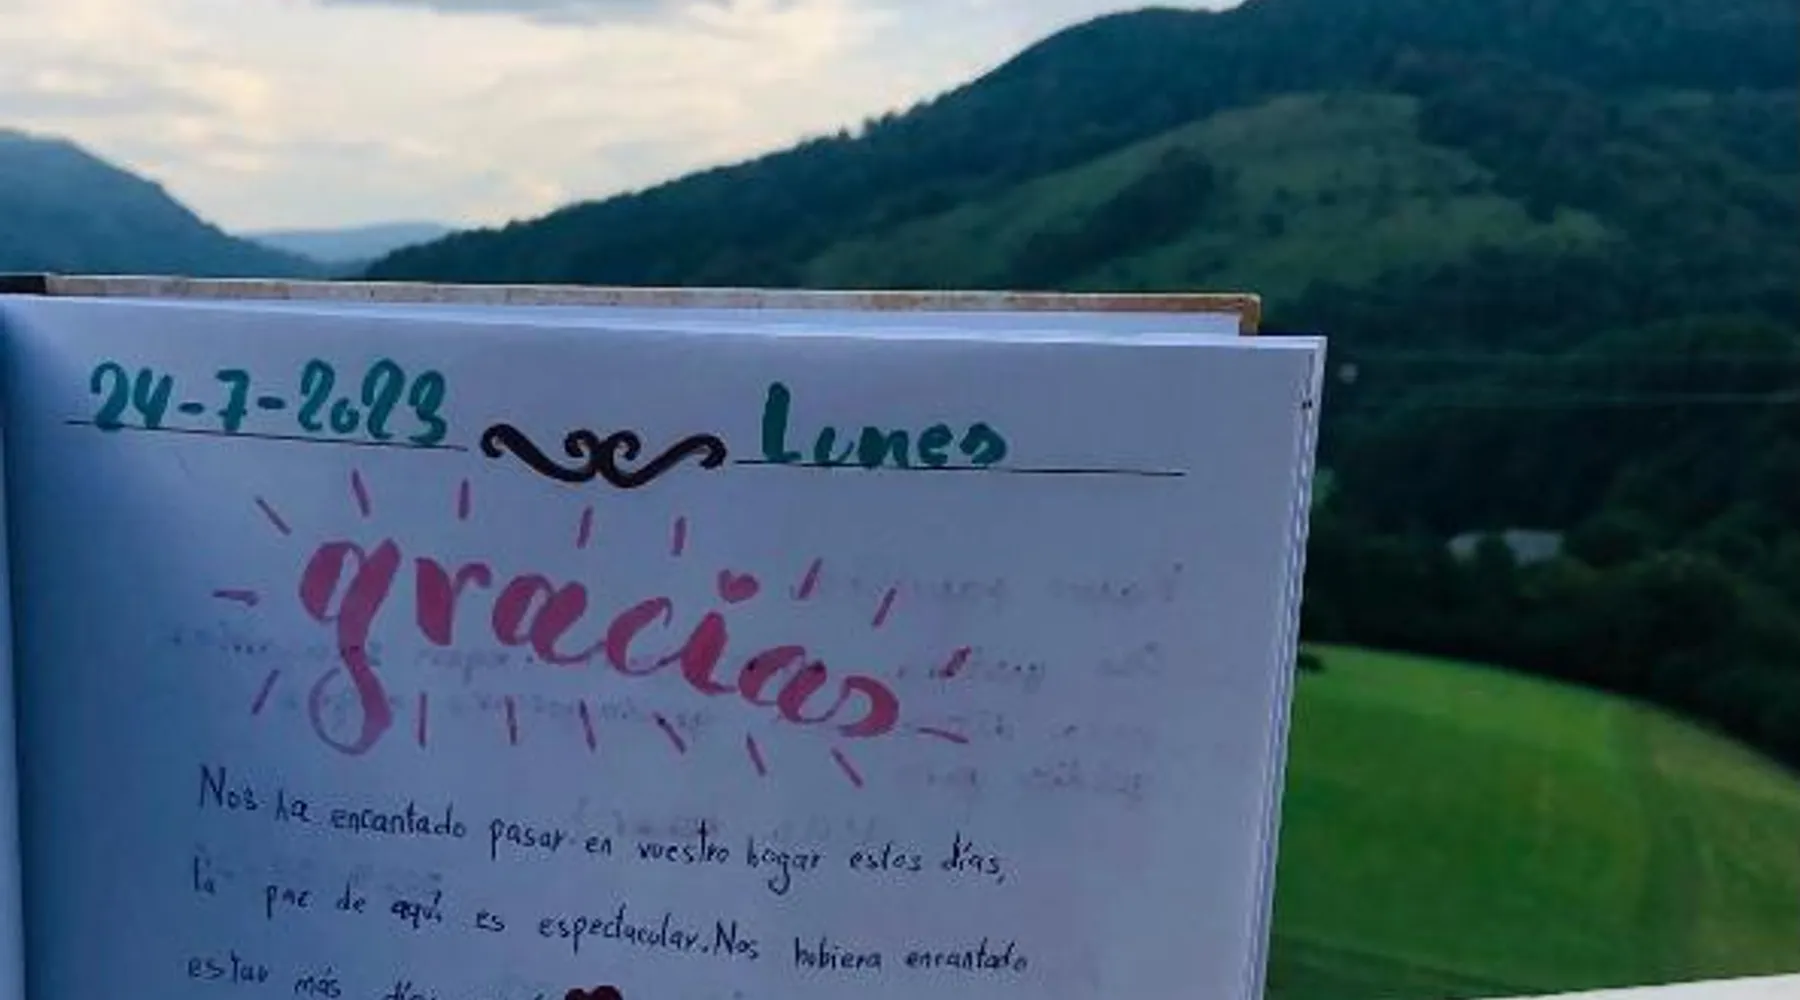 24-7-2023 Lunes
gracias
Nos ha encantado pasar en vuestro hogar estos días,
la paz de aquí es espectacular. Nos hubiera encantado
estar más